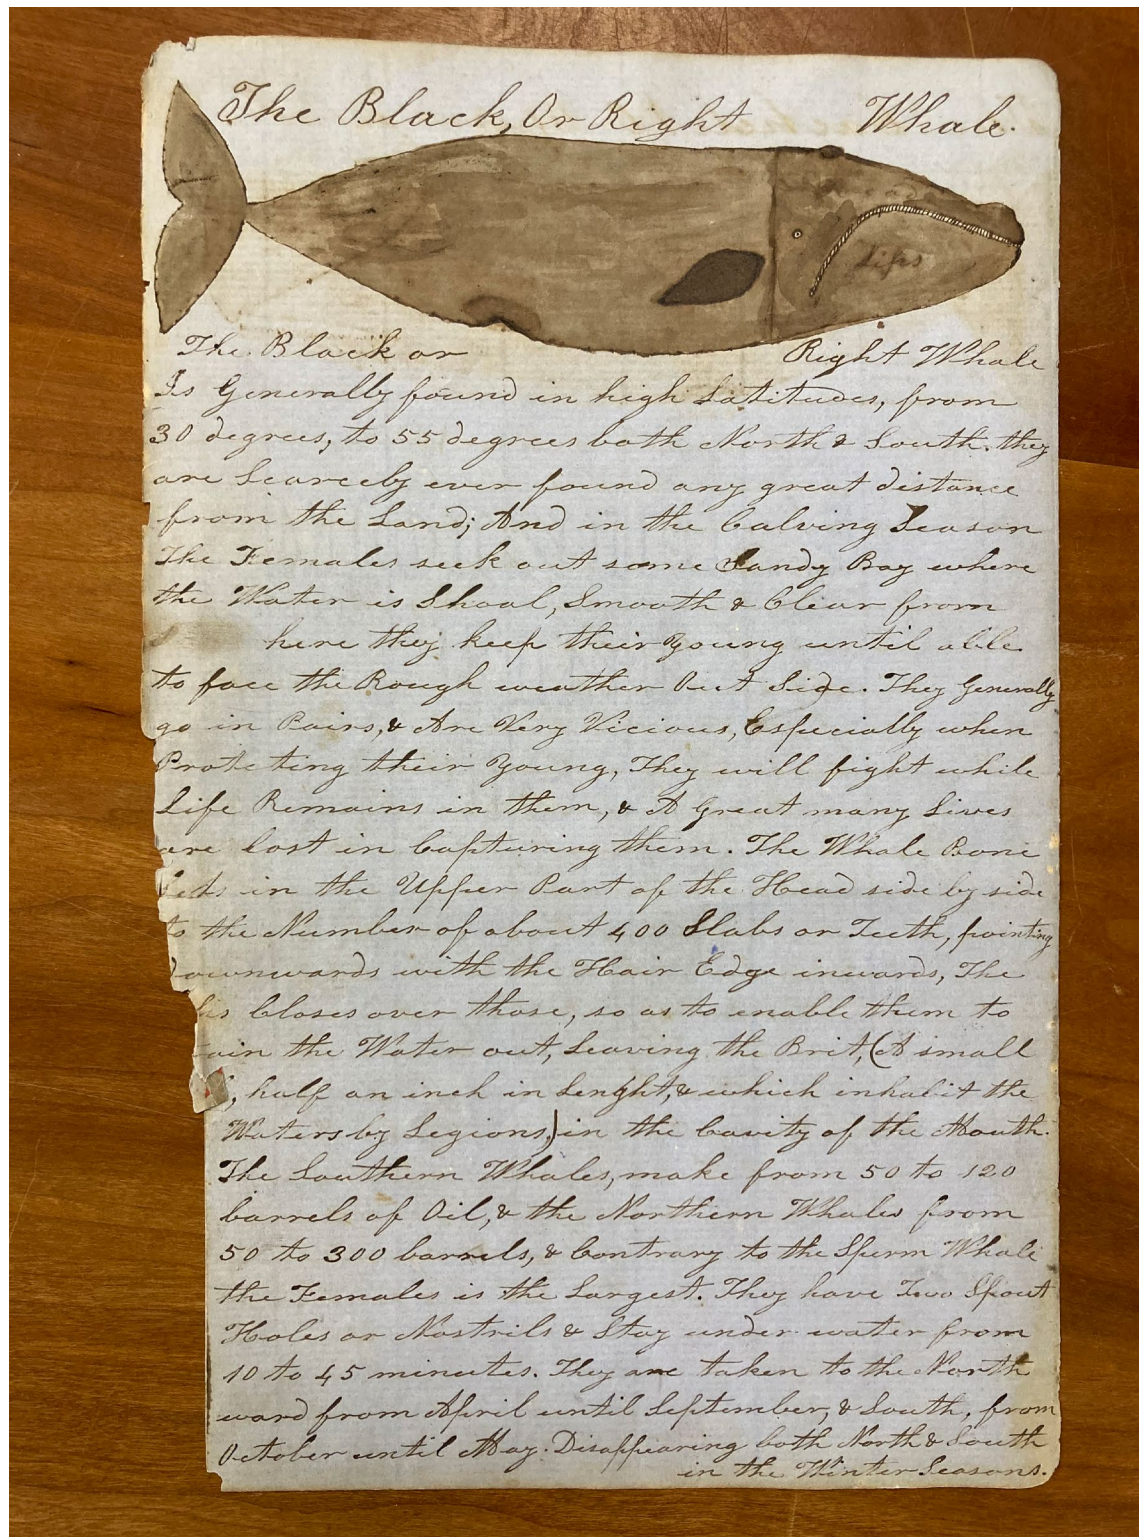 The Black, Or Right Whale.
Lips
The Black or Right Whale
Is Generally found in high Latitudes, from
30 degrees, to 55 degrees both North & South. they
are Scarcely ever found any great distance
from the Land; And in the Calving Season
The Females seek out some Sandy Bay where
the Water is Shoal, Smooth & Clear from
here they keep their Young until able
to face the Rough weather Out Side. They Generally
go in Pairs, & Are Very Vicious, Especially when
Protecting their Young, They will fight while
Life Remains in them, & A Great many Lives
are lost in Capturing them. The Whale Bone
in the Upper Part of the Head side by side
to the Number of about 400 Slabs or Teeth, pointing
downwards with the Hair Edge inwards, The
Closes over those, so as to enable them to
ain the Water out, Leaving the Brit, (A small
, half an inch in Lenght, & which inhabit the
Waters by Legions,) in the Cavity of the Mouth.
The Southern Whales, make from 50 to 120
barrels of Oil, & the Northern Whales from
50 to 300 barrels, & Contrary to the Sperm Whale
the Females is the Largest. They have Two Spout
Holes or Nostrils & Stay under water from
10 to 45 minutes. They are taken to the North
ward from April until September, & South, from
October until May. Disappearing both North & South
in the Winter Seasons.